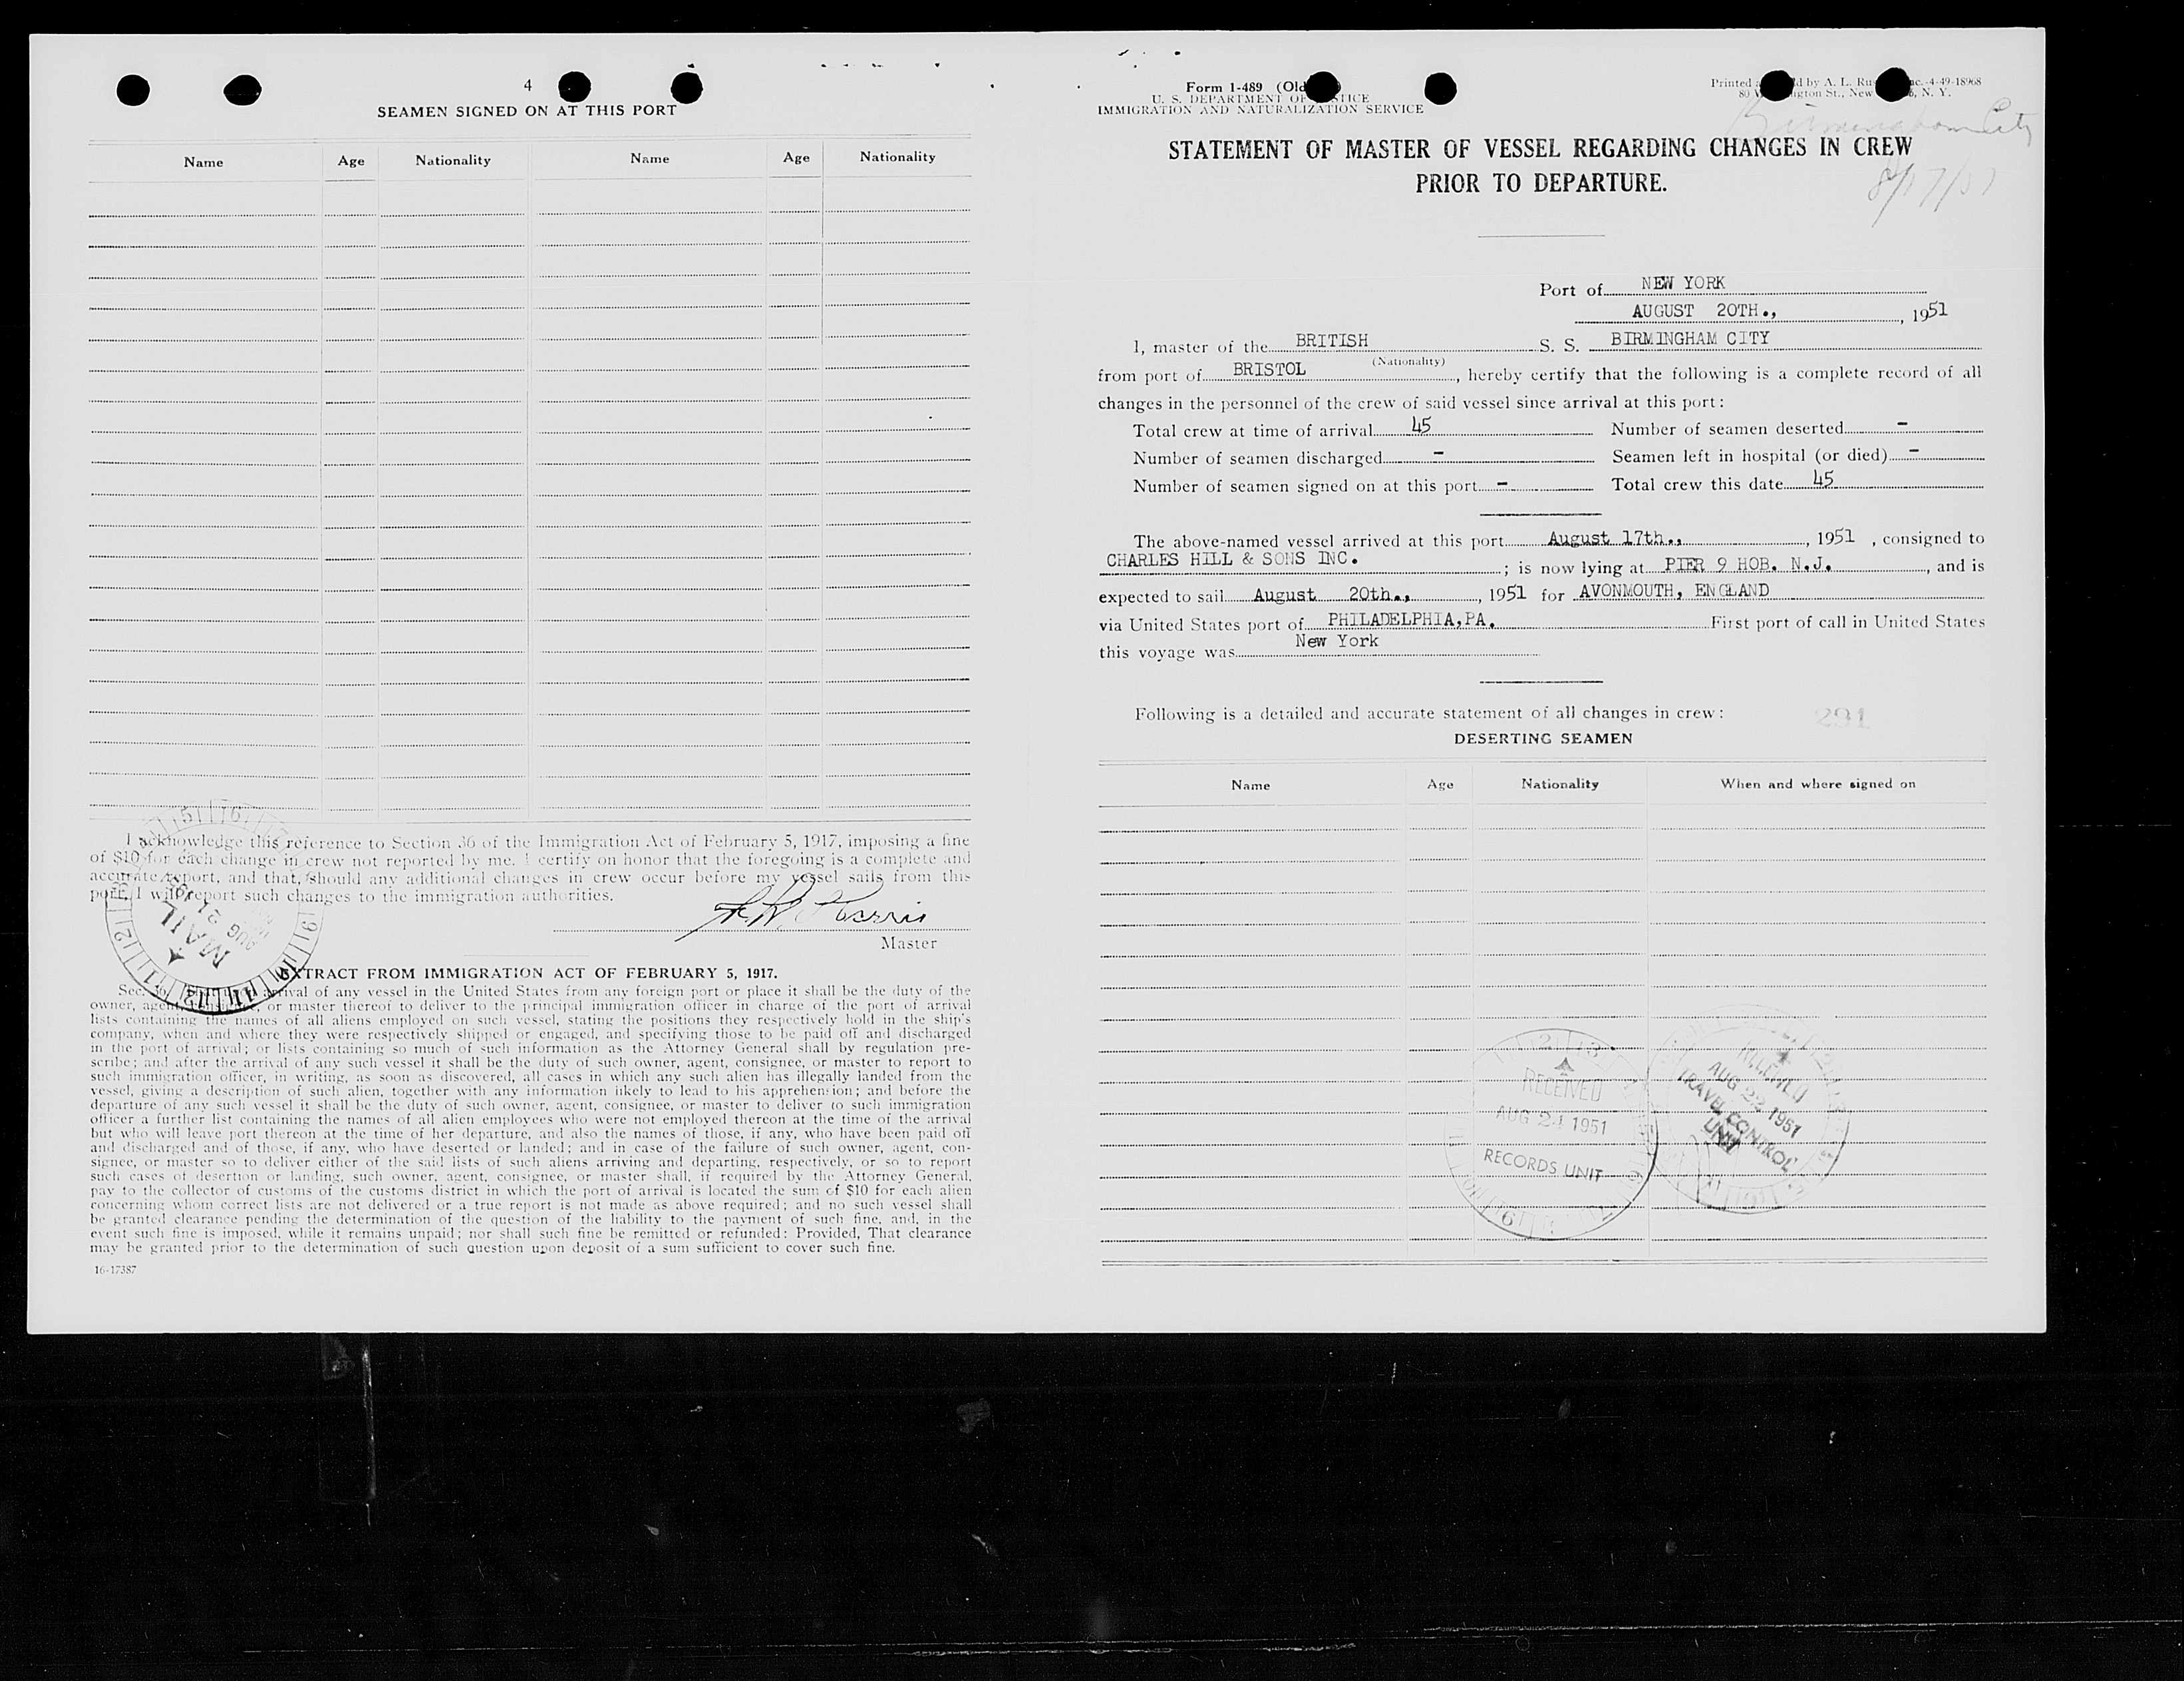 4
SEAMEN SIGNED ON AT THIS PORT
Name Age Nationality Name Age Nationality
I acknowledge this reference to Section 36 of the Immigration Act of February 5, 1917, imposing a fine
of $10 for each change in crew not reported by me. I certify on honor that the foregoing is a complete and
accurate report, and that, should any additional changes in crew occur before my vessel sails from this
port, I will report such changes to the immigration authorities.
Harris
Master
MAIL
AUG 21
EXTRACT FROM IMMIGRATION ACT OF FEBRUARY 5, 1917.
Sec. 36. arrival of any vessel in the United States from any foreign port or place it shall be the duty of the
owner, agent, or master thereof to deliver to the principal immigration officer in charge of the port of arrival
lists containing the names of all aliens employed on such vessel, stating the positions they respectively hold in the ship's
company, when and where they were respectively shipped or engaged, and specifying those to be paid off and discharged
in the port of arrival; or lists containing so much of such information as the Attorney General shall by regulation pre-
scribe; and after the arrival of any such vessel it shall be the duty of such owner, agent, consignee, or master to report to
such immigration officer, in writing, as soon as discovered, all cases in which any such alien has illegally landed from the
vessel, giving a description of such alien, together with any information likely to lead to his apprehension; and before the
departure of any such vessel it shall be the duty of such owner, agent, consignee, or master to deliver to such immigration
officer a further list containing the names of all alien employees who were not employed thereon at the time of the arrival
but who will leave port thereon at the time of her departure, and also the names of those, if any, who have been paid off
and discharged and of those, if any, who have deserted or landed; and in case of the failure of such owner, agent, con-
signee, or master so to deliver either of the said lists of such aliens arriving and departing, respectively, or so to report
such cases of desertion or landing, such owner, agent, consignee, or master shall, if required by the Attorney General,
pay to the collector of customs of the customs district in which the port of arrival is located the sum of $10 for each alien
concerning whom correct lists are not delivered or a true report is not made as above required; and no such vessel shall
be granted clearance pending the determination of the question of the liability to the payment of such fine, and, in the
event such fine is imposed, while it remains unpaid; nor shall such fine be remitted or refunded: Provided, That clearance
may be granted prior to the determination of such question upon deposit of a sum sufficient to cover such fine.
16-17387
Form 1-489 (Old
U. S. DEPARTMENT OF JUSTICE
IMMIGRATION AND NATURALIZATION SERVICE
Printed by A. L. 4-49-18968
80 St., New N. Y.
Birmingham City
8/17/51
STATEMENT OF MASTER OF VESSEL REGARDING CHANGES IN CREW
PRIOR TO DEPARTURE.
Port of NEW YORK
AUGUST 20TH., , 1951
I, master of the BRITISH S. S. BIRMINGHAM CITY
(Nationality)
from port of BRISTOL , hereby certify that the following is a complete record of all
changes in the personnel of the crew of said vessel since arrival at this port:
Total crew at time of arrival 45 Number of seamen deserted -
Number of seamen discharged - Seamen left in hospital (or died) -
Number of seamen signed on at this port - Total crew this date 45
The above-named vessel arrived at this port August 17th., , 1951 , consigned to
CHARLES HILL & SONS INC. ; is now lying at PIER 9 HOB. N.J. , and is
expected to sail August 20th., , 1951 for AVONMOUTH, ENGLAND
via United States port of PHILADELPHIA,PA. First port of call in United States
this voyage was New York
Following is a detailed and accurate statement of all changes in crew:
291
DESERTING SEAMEN
Name Age Nationality When and where signed on
RECEIVED
AUG 24 1951
RECORDS UNIT
RECEIVED
AUG 22 1951
TRAVEL CONTROL
UNIT